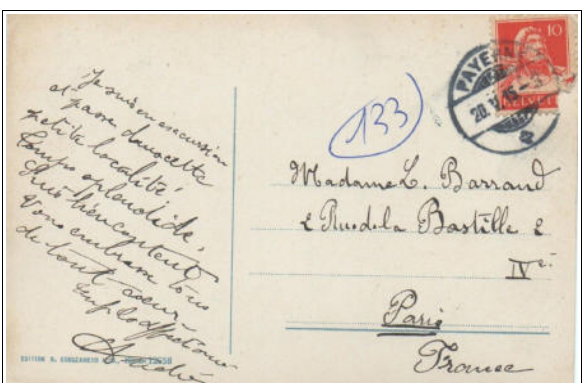 Je suis en excursion
et passe dans cette
petite localité.
Temps splendide,
Suis bien content
Vous embrasse tous
de tout coeur
André
133
10
PAYERNE
20. V. 15
HELVETIA
Madame L. Barrand
2 Rue de la Bastille 2
IVe
Paris
France